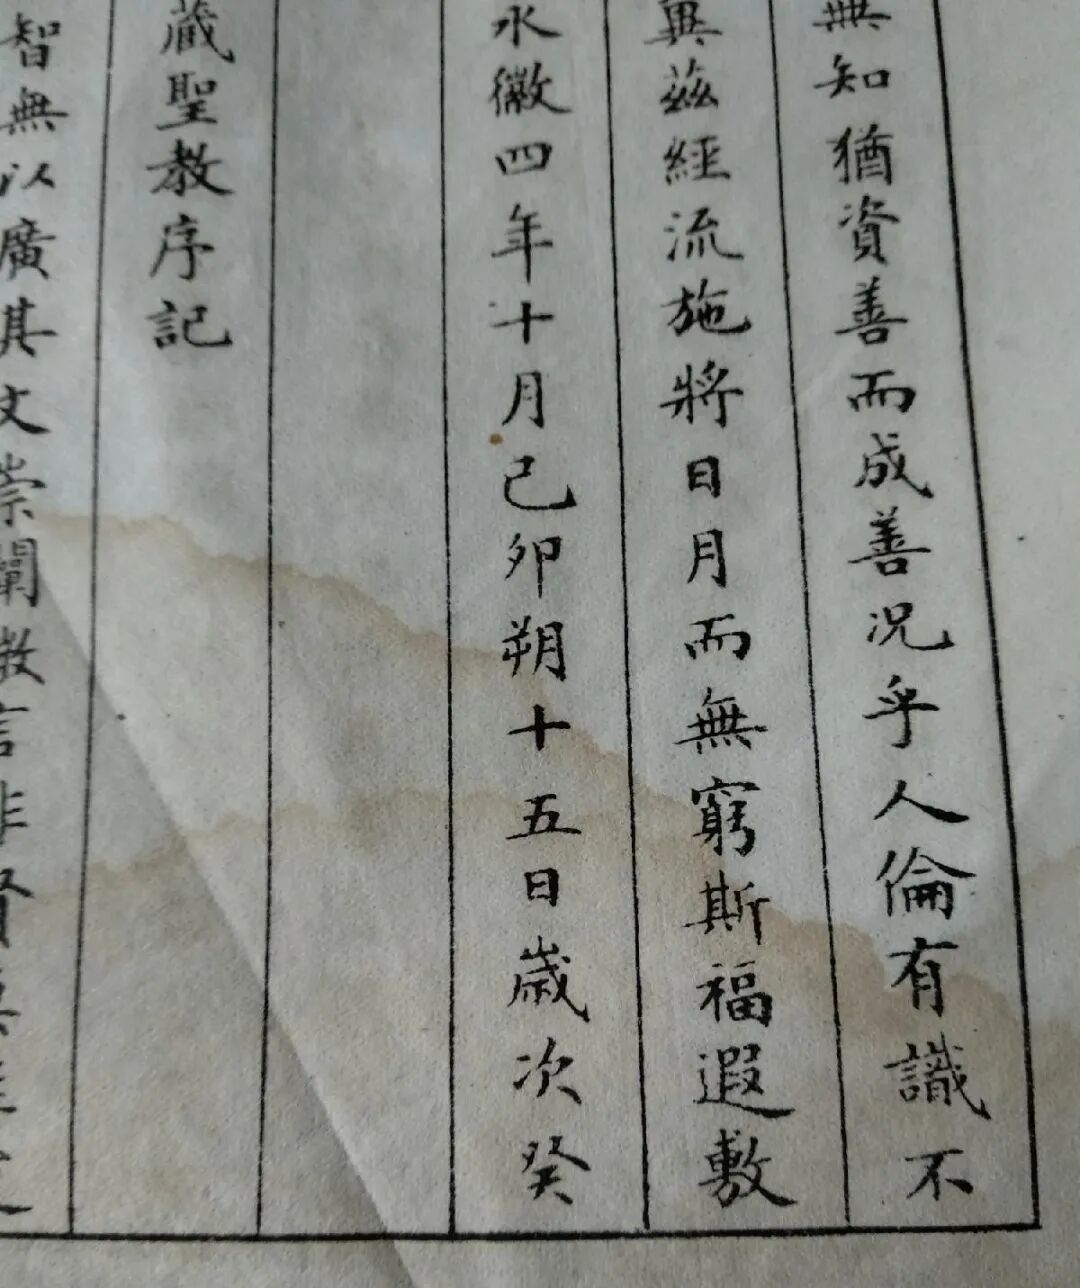 無知猶資善而成善況乎人倫有識不
與茲經流施將日月而無窮斯福遐敷
永徽四年十月己卯朔十五日歲次癸
藏聖教序記
智無以廣其文崇闡微言非賢莫